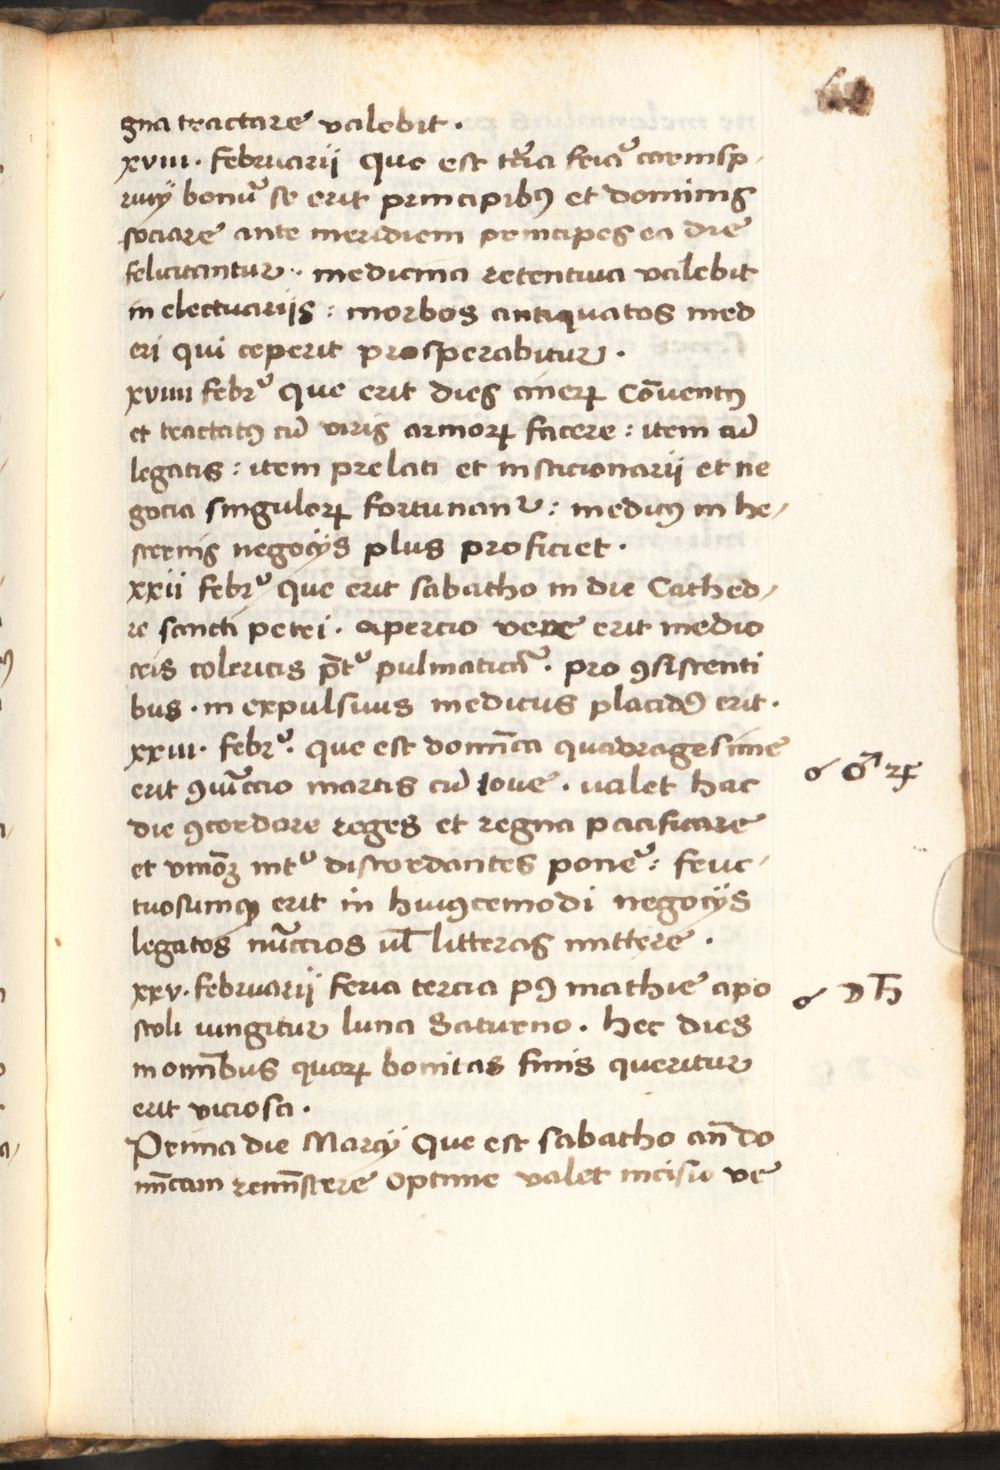 gna tractare valebit .
xviii . februarii que est tercia feria carnisp
rivii bonũ se erit principibꝰ et dominis
sociare ante meridiem principes ea die
felicitantur . medicina retentiva valebit
in electuariis : morbos antiquatos med
eri qui ceperit prosperabitur .
xviiii febrͬ que erit dies cinerꝝ Cõventꝰ
et tractatꝰ cũ viris armorꝝ facere : item cũ
legatis : item prelati et insticionarii et ne
gocia singulorꝝ fortunant᷑ : medicꝰ in he-
sternis negocijs plus proficiet .
xxii febrͬ que erit sabatho in die Cathed-
re sancti petri . apercio vene erit medio
cris colericis p̃t pulmaticã . pro ꝯsistenti
bus . in expulsivis medicus placidꝰ erit .
xxiii . febrͬ . que est domĩca quadragesime
erit ꝯiũctio martis cũ Iove . valet hac
die ꝯcordare reges et regna pacificare
et vnionẽ int discordantes ponere : fruc-
tuosumqꝫ erit in huiꝰcemodi negocijs
legatos nũccios vel litteras mittere .
xxv . februarii feria tercia pꝰ mathie apo
stoli iungitur luna Saturno . hec dies
in omĩbus quorꝝ bonitas finis queritur
erit viciosa .
Prima die Marcij Que est sabatho añ do
mĩcam remĩscere Optime valet incisio ve
☌ ♂ ♃
☌ ☽ ♄